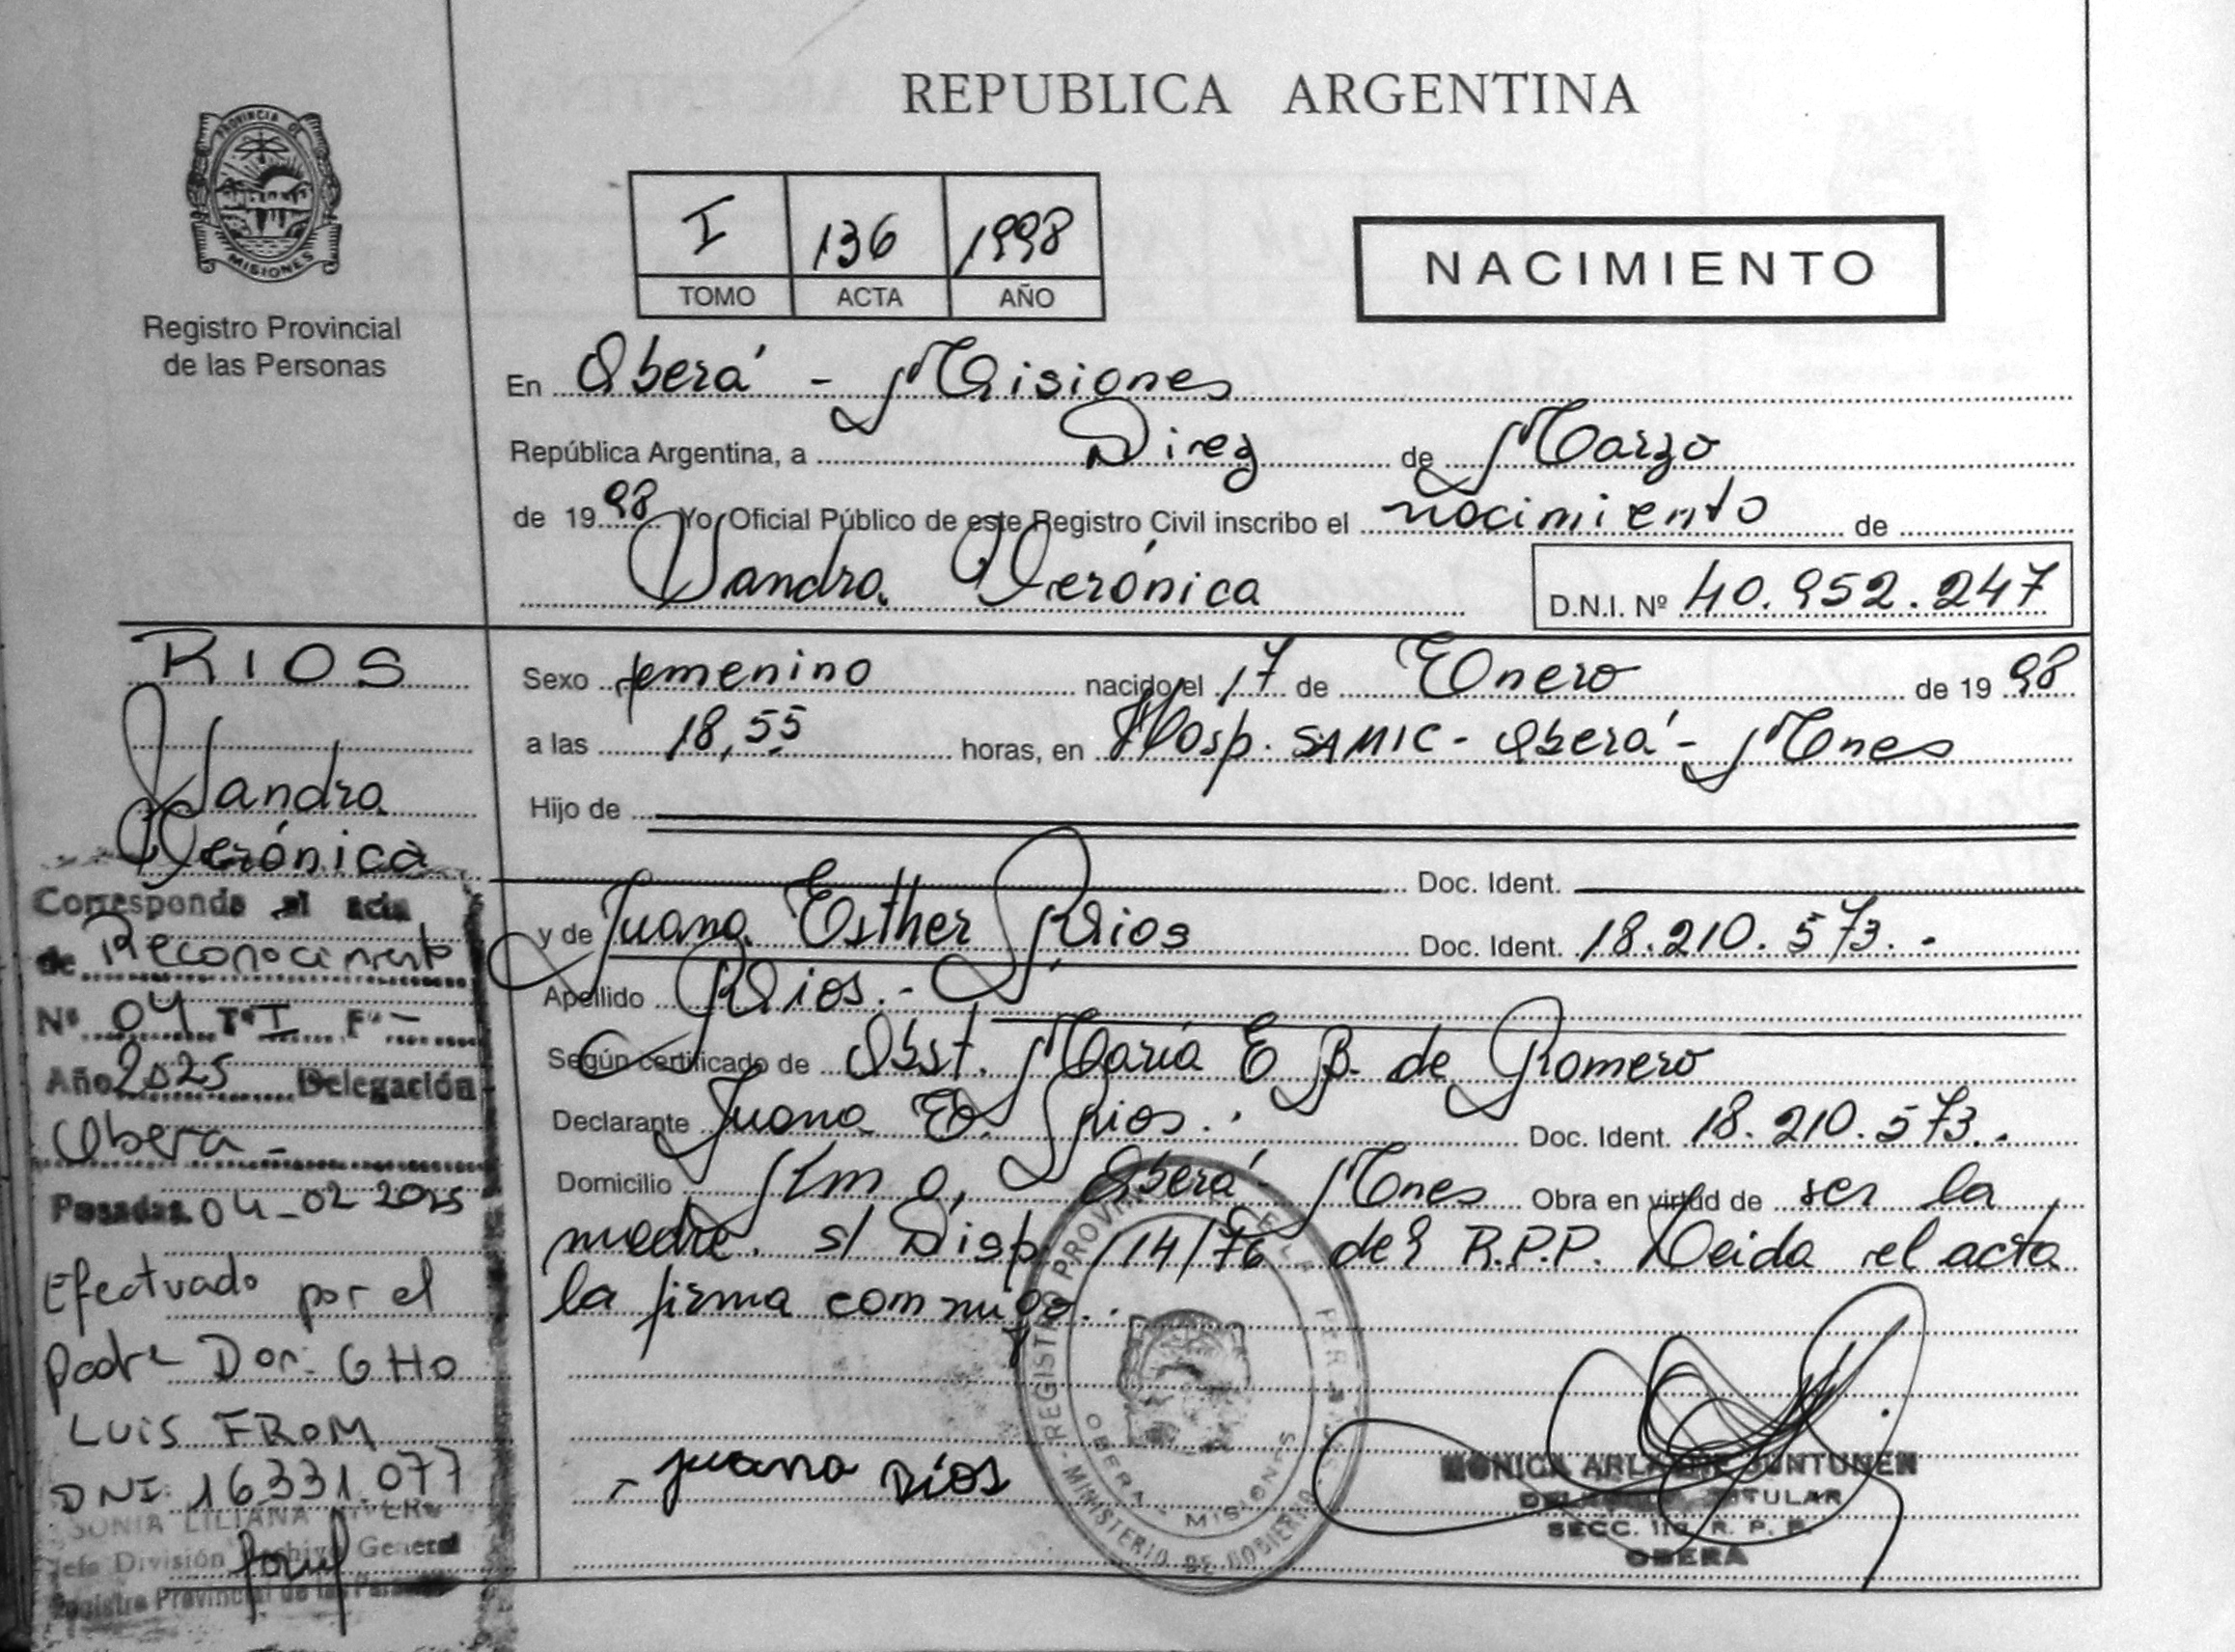 REPUBLICA ARGENTINA
PROVINCIA DE
MISIONES
Registro Provincial
de las Personas
I 136 1998
TOMO ACTA AÑO
NACIMIENTO
En Oberá - Misiones
República Argentina, a Diez de Marzo
de 19 98 Yo, Oficial Público de este Registro Civil inscribo el nacimiento de
Sandra Verónica D.N.I. Nº 40.952.247
RIOS
Sandra
Verónica
Sexo femenino nacido el 17 de Enero de 19 98
a las 18,55 horas, en Hosp. SAMIC - Oberá - Mnes
Hijo de
Doc. Ident.
y de Juana Esther Rios Doc. Ident. 18.210.573.-
Apellido Rios.-
Según certificado de Obst. María E B. de Romero
Declarante Juana E. Rios. Doc. Ident. 18.210.573..
Domicilio Km 0, Oberá - Mnes Obra en virtud de ser la
madre. s/ Disp. 14/76 del R.P.P. Leida el acta
la firma conmigo..
Corresponde al acta
de Reconocimiento
Nº 04 Tº I Fº -
Año 2025 Delegación
Obera -
Posadas 04-02-2025
Efectuado por el
padre Don: GHO
LUIS FROM
DNI: 16331.077
SONIA LILIANA
Jefe División Archivo General
Registro Provincial de las Personas
juana Ríos
REGISTRO PROVINCIAL DE LAS PERSONAS
OBERA - MISIONES
MINISTERIO DE GOBIERNO
MONICA JUNTUNEN
DELEGADA TITULAR
SECC. R. P. P.
OBERA